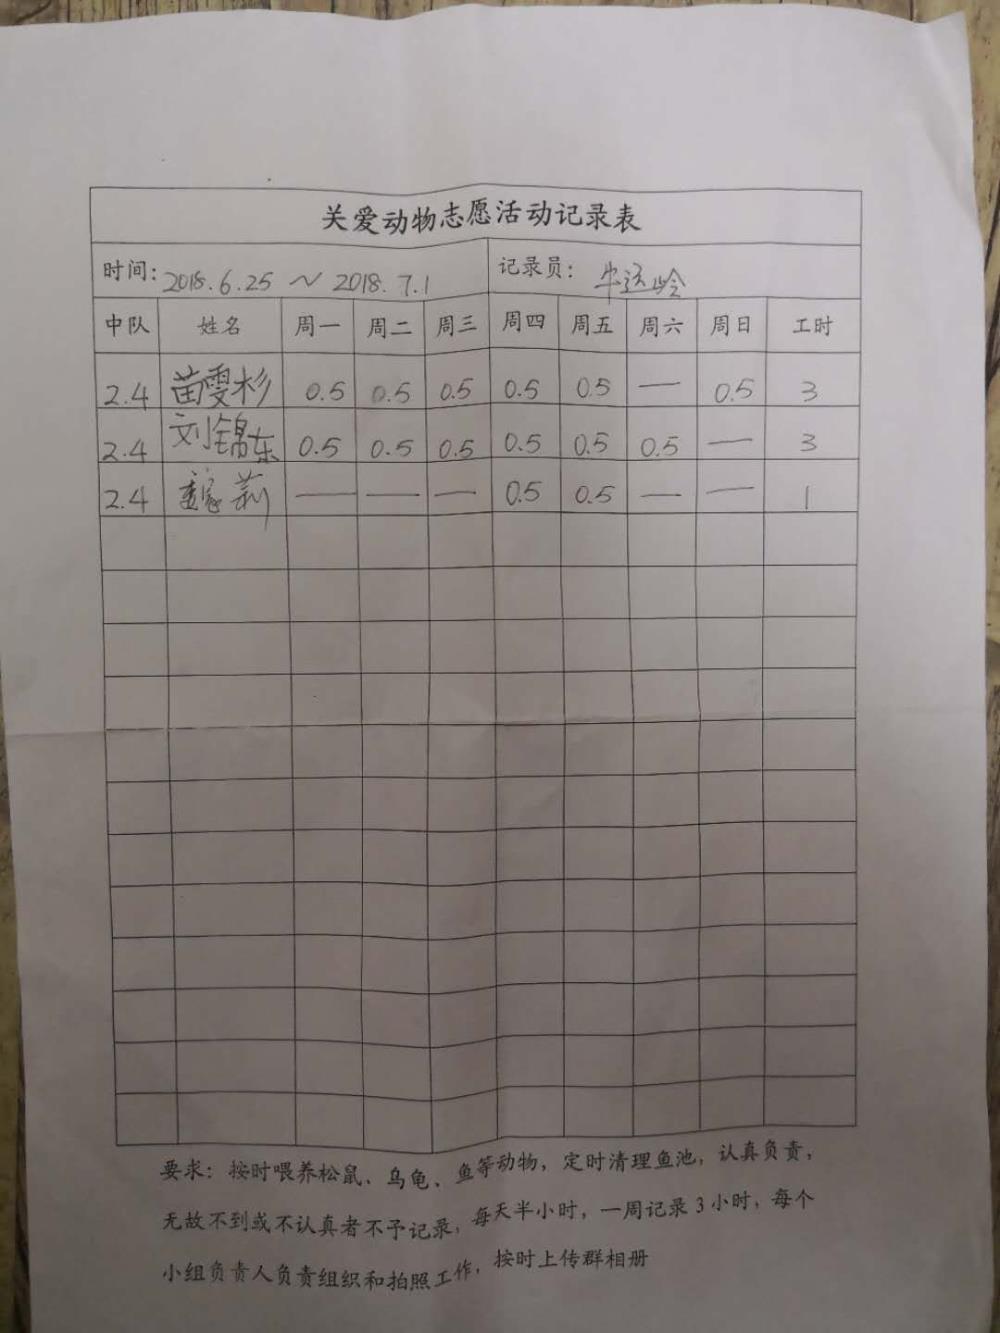 关爱动物志愿活动记录表
时间：2018.6.25 ～ 2018.7.1 记录员：牛运岭
中队 姓名 周一 周二 周三 周四 周五 周六 周日 工时
2.4 苗雯杉 0.5 0.5 0.5 0.5 0.5 — 0.5 3
2.4 刘锦东 0.5 0.5 0.5 0.5 0.5 0.5 — 3
2.4 莉 — — — 0.5 0.5 — — 1
要求：按时喂养松鼠、乌龟、鱼等动物，定时清理鱼池，认真负责，
无故不到或不认真者不予记录，每天半小时，一周记录3小时，每个
小组负责人负责组织和拍照工作，按时上传群相册